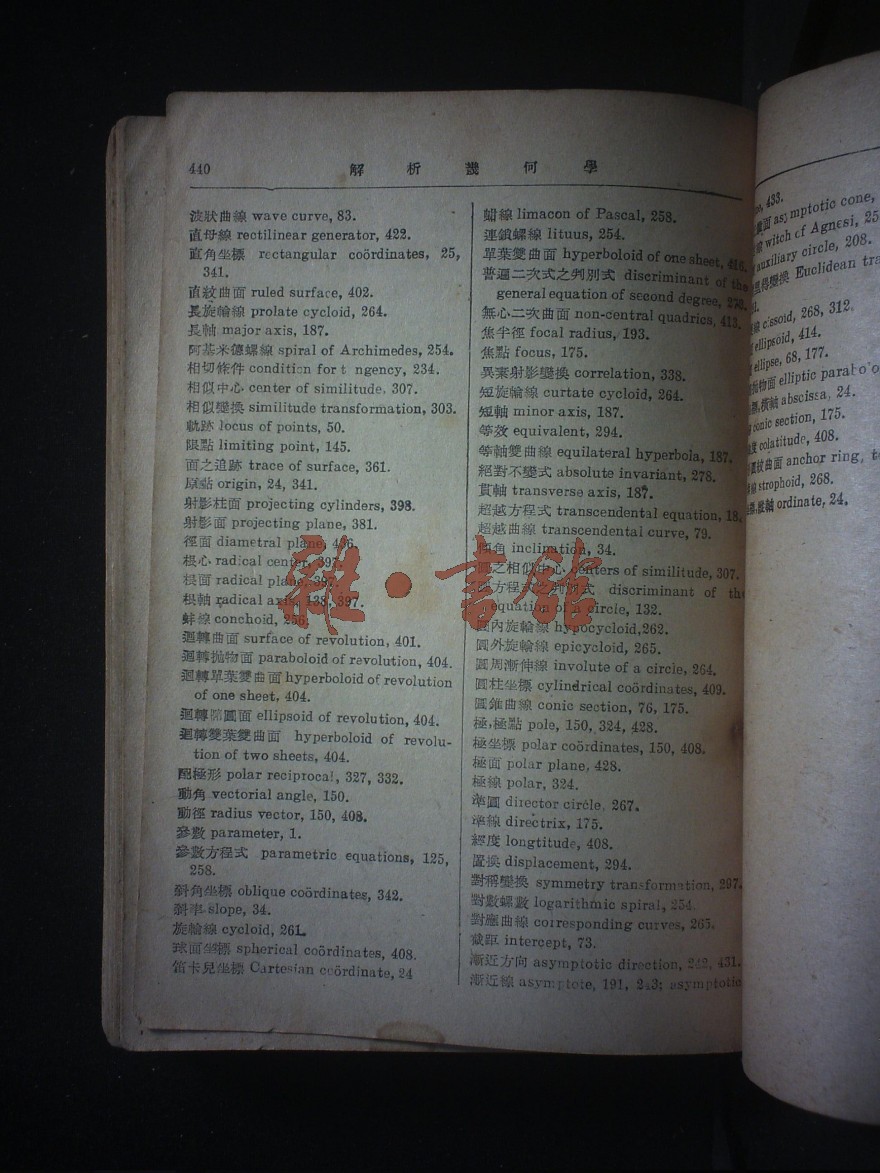 440
解析幾何學
波狀曲線 wave curve, 83.
直母線 rectilinear generator, 422.
直角坐標 rectangular coördinates, 25,
341.
直紋曲面 ruled surface, 402.
長旋輪線 prolate cycloid, 264.
長軸 major axis, 187.
阿基米德螺線 spiral of Archimedes, 254.
相切條件 condition for t ngency, 234.
相似中心 center of similitude, 307.
相似變換 similitude transformation, 303.
軌跡 locus of points, 50.
限點 limiting point, 145.
面之追跡 trace of surface, 361.
原點 origin, 24, 341.
射影柱面 projecting cylinders, 398.
射影面 projecting plane, 381.
徑面 diametral plane,
根心 radical center, 397.
根面 radical plane, 397.
根軸 radical axis, 138, 397.
蚌線 conchoid, 256.
迴轉曲面 surface of revolution, 401.
迴轉拋物面 paraboloid of revolution, 404.
迴轉單葉雙曲面 hyperboloid of revolution
of one sheet, 404.
迴轉橢圓面 ellipsoid of revolution, 404.
迴轉雙葉雙曲面 hyperboloid of revolu-
tion of two sheets, 404.
配極形 polar reciprocal, 327, 332.
動角 vectorial angle, 150.
動徑 radius vector, 150, 408.
參數 parameter, 1.
參數方程式 parametric equations, 125,
258.
斜角坐標 oblique coördinates, 342.
斜率 slope, 34.
旋輪線 cycloid, 261.
球面坐標 spherical coördinates, 408.
笛卡兒坐標 Cartesian coördinate, 24
蚶線 limacon of Pascal, 258.
連鎖螺線 lituus, 254.
單葉雙曲面 hyperboloid of one sheet, 416.
普遍二次式之判別式 discriminant of the
general equation of second degree, 270.
無心二次曲面 non-central quadrics, 413.
焦半徑 focal radius, 193.
焦點 focus, 175.
異素射影變換 correlation, 338.
短旋輪線 curtate cycloid, 264.
短軸 minor axis, 187.
等效 equivalent, 294.
等軸雙曲線 equilateral hyperbola, 187.
絕對不變式 absolute invariant, 278.
貫軸 transverse axis, 187.
超越方程式 transcendental equation, 18.
超越曲線 transcendental curve, 79.
傾角 inclination, 34.
圓之相似中心 centers of similitude, 307.
圓方程式之判別式 discriminant of the
equation of a circle, 132.
圓內旋輪線 hypocycloid,262.
圓外旋輪線 epicycloid, 265.
圓周漸伸線 involute of a circle, 264.
圓柱坐標 cylindrical coördinates, 409.
圓錐曲線 conic section, 76, 175.
極,極點 pole, 150, 324, 428.
極坐標 polar coördinates, 150, 408.
極面 polar plane, 428.
極線 polar, 324.
準圓 director circle, 267.
準線 directrix, 175.
經度 longtitude, 408.
置換 displacement, 294.
對稱變換 symmetry transformation, 297.
對數螺數 logarithmic spiral, 254.
對應曲線 corresponding curves, 265.
截距 intercept, 73.
漸近方向 asymptotic direction, 242, 431.
漸近線 asymptote, 191, 243; asymptotic
433.
asymptotic cone,
witch of Agnesi, 25
auxiliary circle, 208.
變換 Euclidean tra
cissoid, 268, 312.
ellipsoid, 414.
ellipse, 68, 177.
拋物面 elliptic parabolo
橫軸 abscissa, 24.
conic section, 175.
colatitude, 408.
紋曲面 anchor ring, t
strophoid, 268.
縱軸 ordinate, 24,
雜·書館